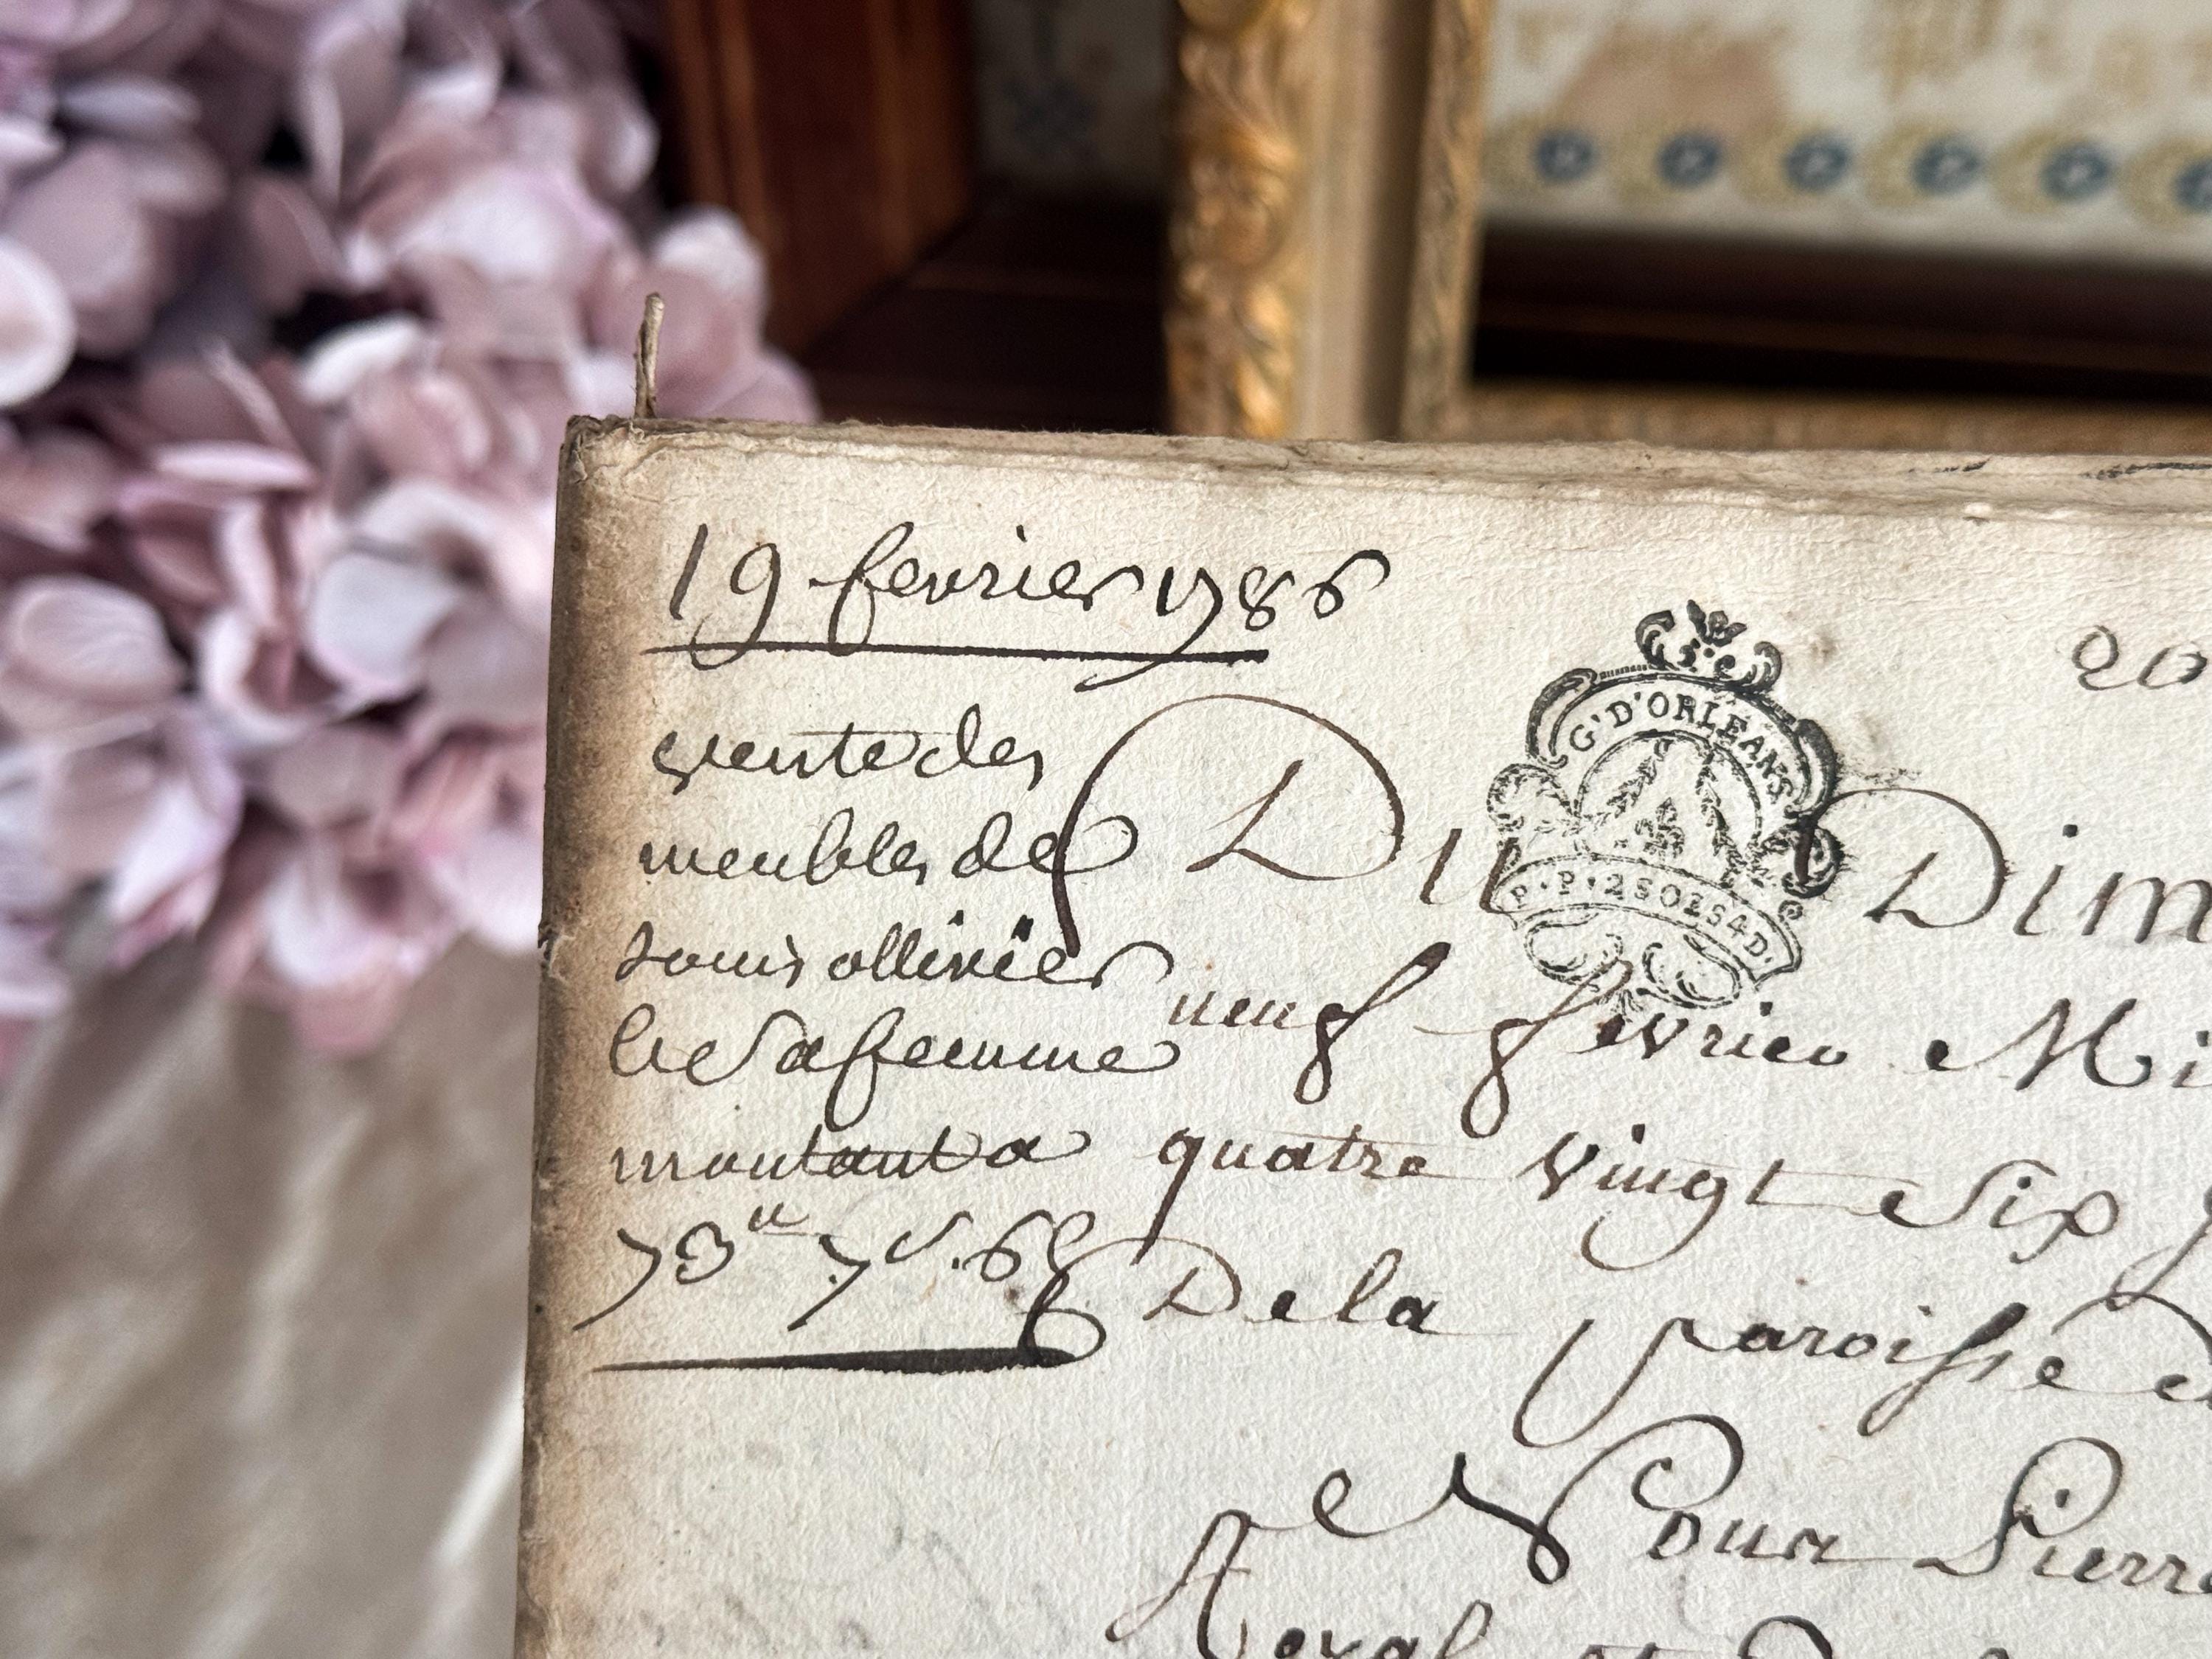 19 fevrier 1786
vente des
meubles de
Louis ollivier
et Sa femme
montant a
73ᵗᵗ 7ˢ. 6ᵈ
20
G. D'ORLEANS
P. P. 2 SO 2 S 4 D.
Du Dim
neuf fevrier Mi
quatre vingt Six
De la paroisse
Pour Pierre
Royal et